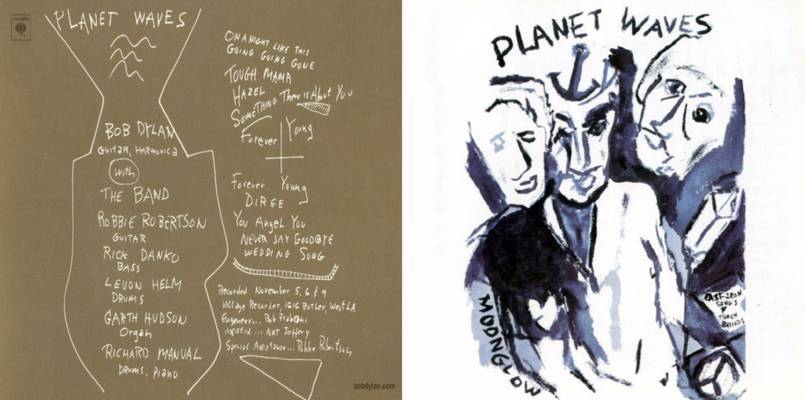 PLANET WAVES
BOB DYLAN
GUITAR, HARMONICA
with
THE BAND
ROBBIE ROBERTSON
GUITAR
RICK DANKO
BASS
LEVON HELM
DRUMS
GARTH HUDSON
Organ
RICHARD MANUAL
DRUMS, Piano
ON A NIGHT LIKE THIS
GOING GOING GONE
TOUGH MAMA
HAZEL
SOMETHING There is About You
Forever Young
Forever Young
DIRGE
You Angel You
NEVER SAY GOODBYE
WEDDING SONG
Recorded November 5, 6 & 9
Village Recorder, 1616 Butler, West LA
Engineer... Rob Fraboni
Assisted... NAT Jeffery
Special Assistance... Robbie Robertson
bobdylan.com
PLANET WAVES
MOONGLOW
CAST-IRON
SONGS &
TORCH
BALLADS